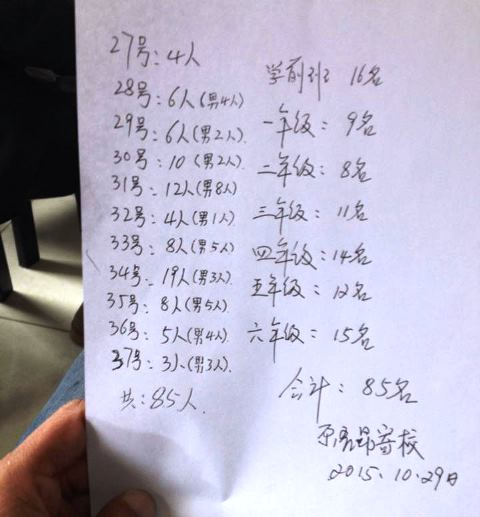 27号：4人
28号：6人(男4人)
29号：6人(男2人).
30号：10(男2人).
31号：12人(男8人)
32号：4人(男1人)
33号：8人(男5人)
34号．19人(男3人).
35号：8人(男5人)
36号：5人(男4人)
37号：3人(男3人).
共：85人.
学前班 16名
一年级：9名
二年级：8名
三年级：11名
四年级：14名
五年级：12名
六年级：15名
合计：85名
昂寄校
2015.10.29日